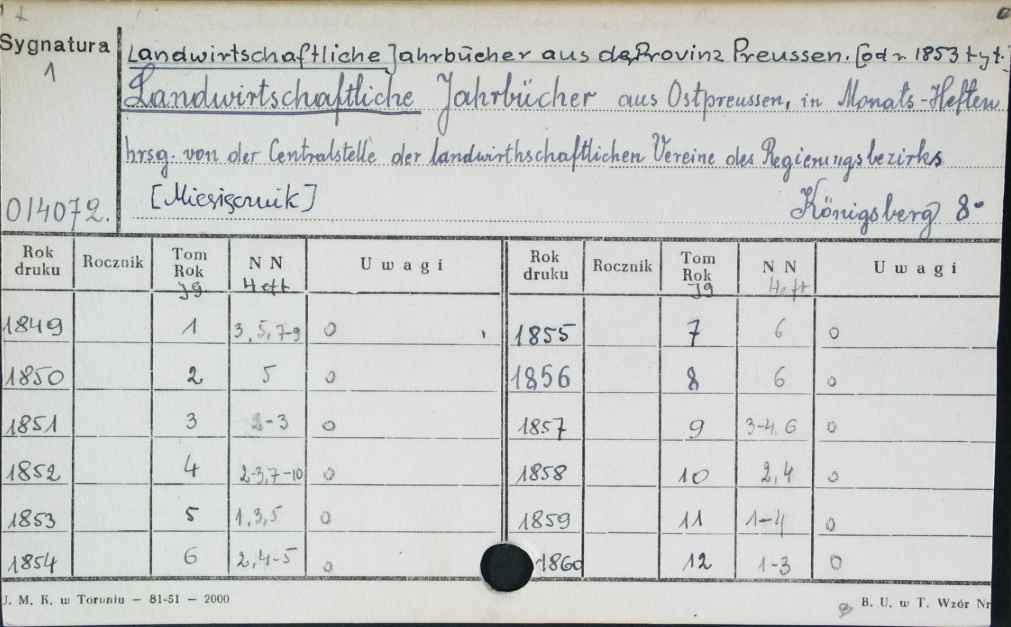 Sygnatura
1
014072.
Landwirtschaftliche Jahrbücher aus der Provinz Preussen. [od r. 1853 tyt.]
Landwirtschaftliche Jahrbücher aus Ostpreussen, in Monats-Heften
hrsg. von der Centralstelle der landwirthschaftlichen Vereine des Regierungsbezirks
[Miesięcznik] Königsberg 8°
Rok druku Rocznik Tom Rok Jg N N Heft Uwagi Rok druku Rocznik Tom Rok Jg N N Heft Uwagi
1849 1 3,5,7-9 o 1855 7 6 o
1850 2 5 o 1856 8 6 o
1851 3 2-3 o 1857 9 3-4,6 o
1852 4 2-3,7-10 o 1858 10 2,4 o
1853 5 1,3,5 o 1859 11 1-4 o
1854 6 2,4-5 o 1860 12 1-3 o
J. M. K. w Toruniu — 81-51 — 2000 B. U. w T. Wzór Nr